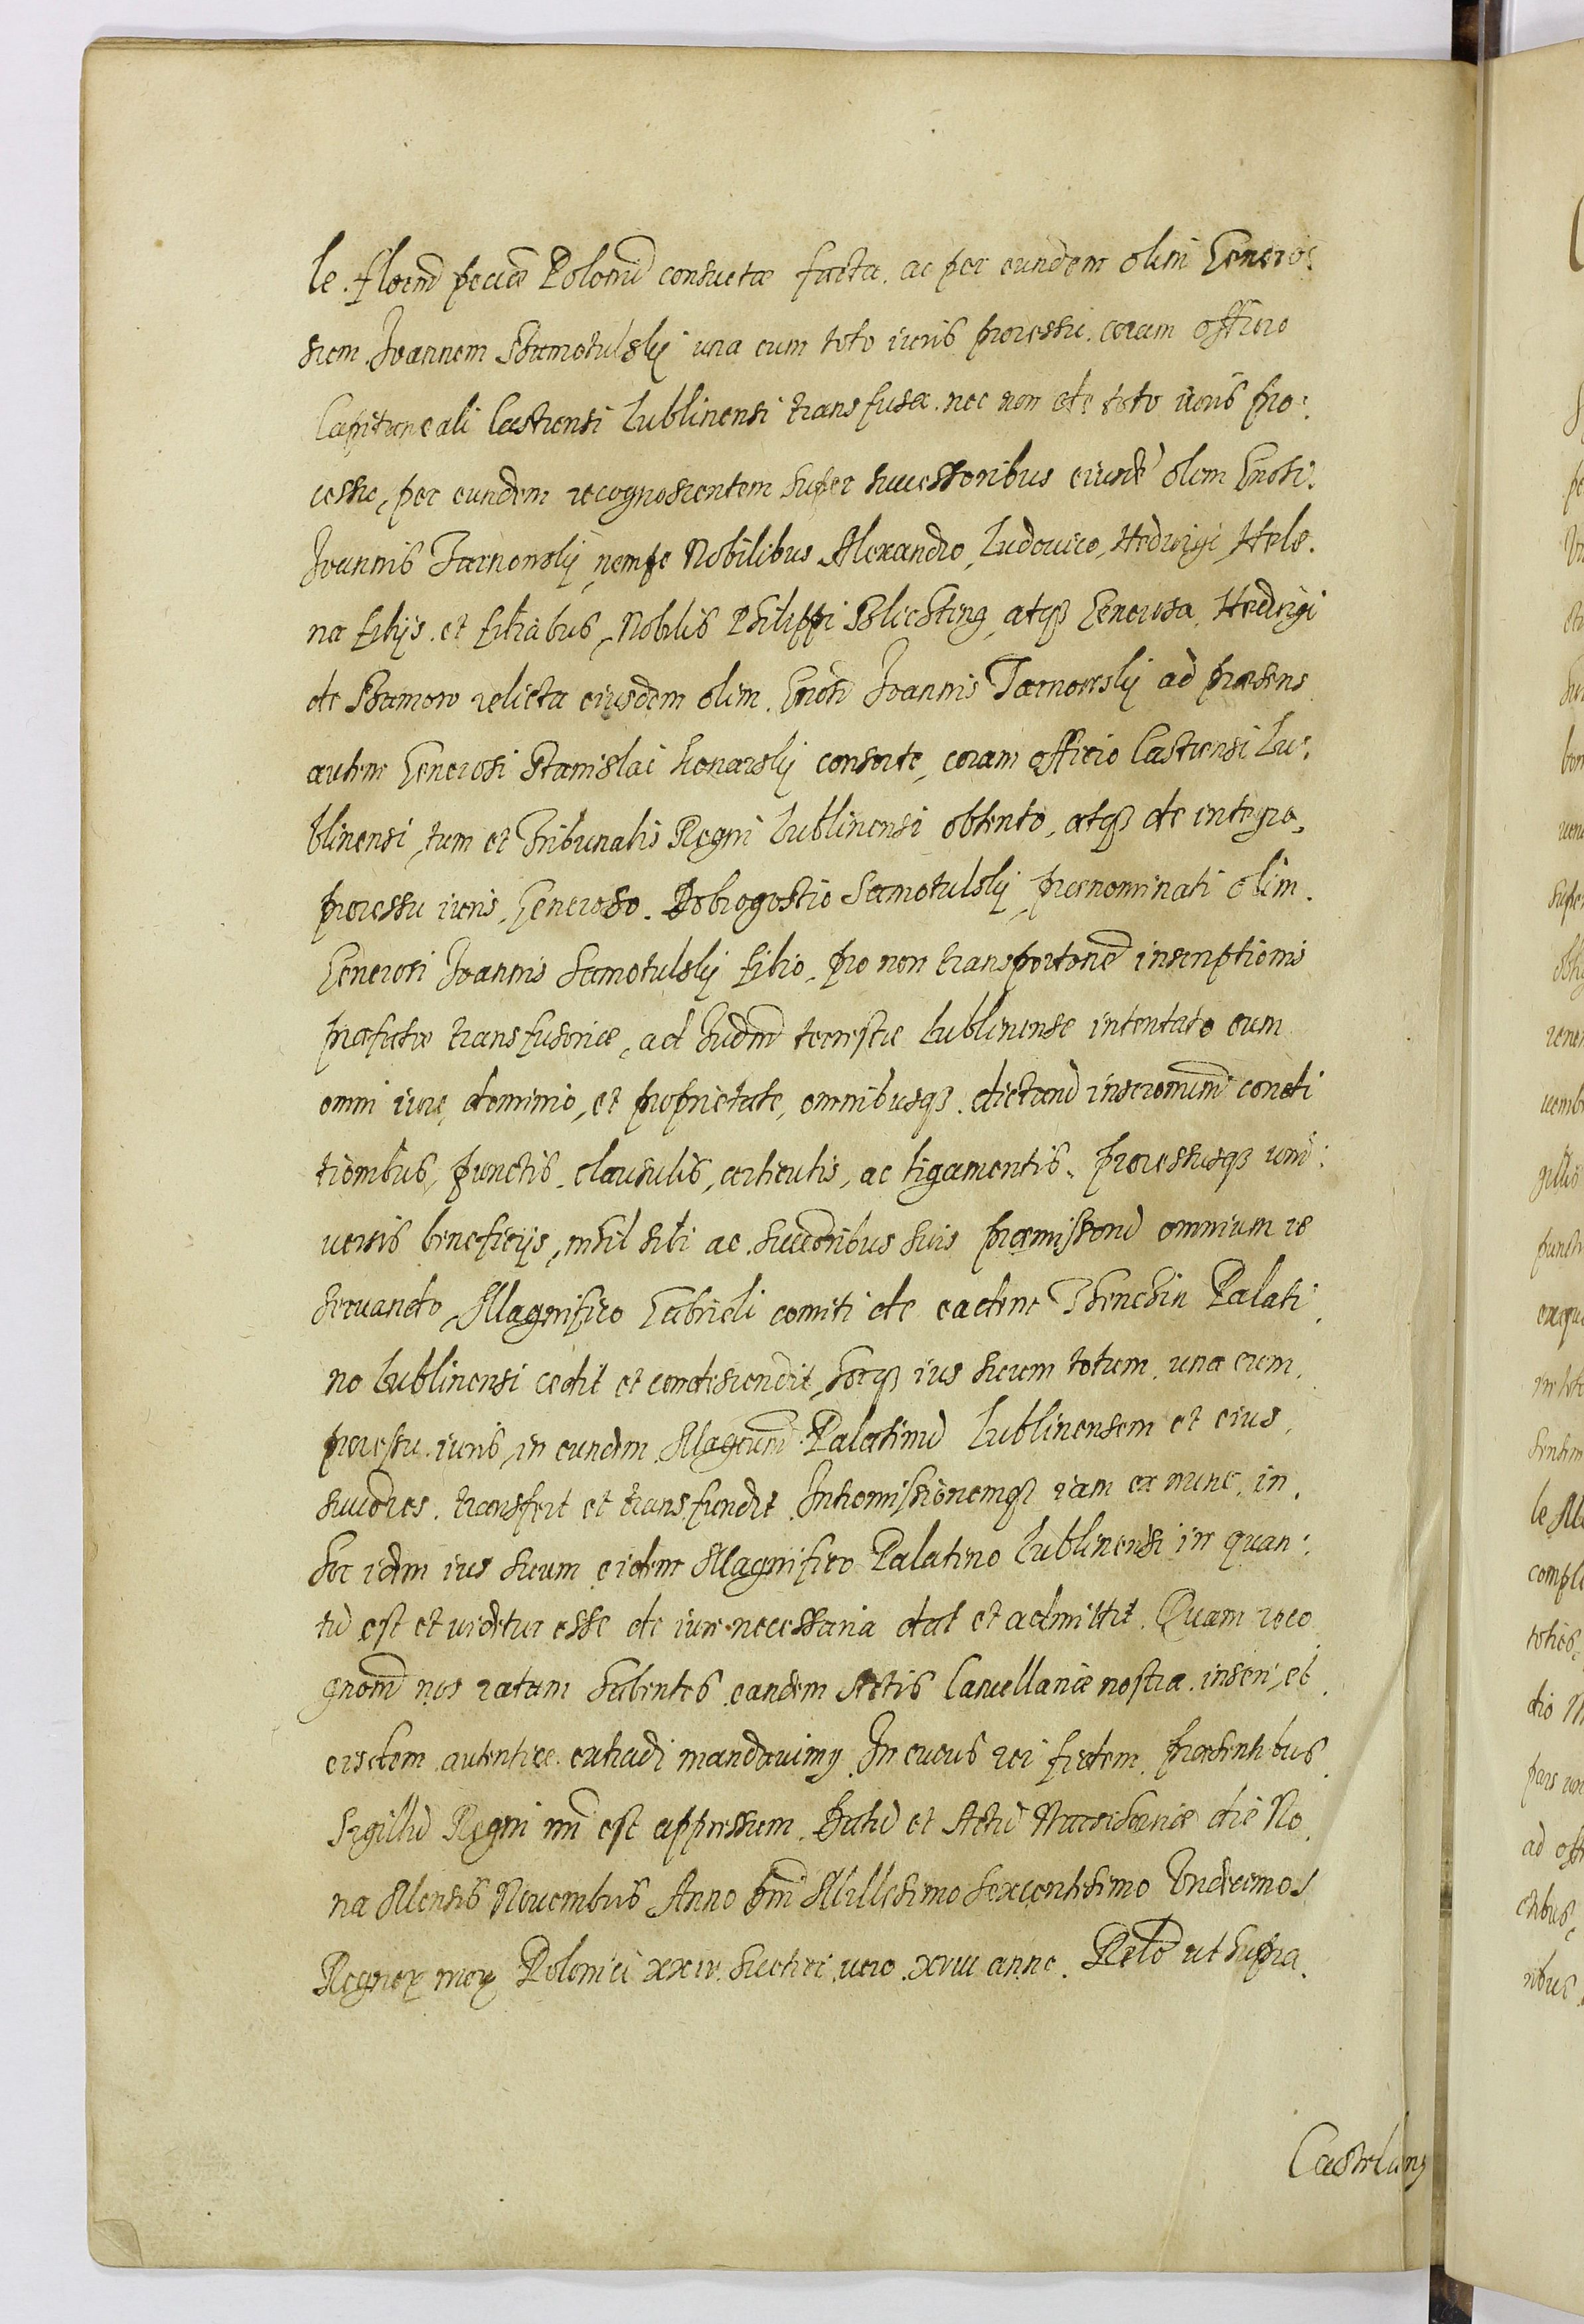 le. floren pecuniæ Polonic consuetæ facta. ac per eundem olim Genero:
sum. Joannem Schamotulskij una cum toto iuris processu. coram officio
Capitaneali Castrensi Lublinensi transfusa. nec non de toto iuris pro:
cessu, per eundem recognoscentem super successoribus eiusdē olim Gnosi.
Joannis Tarnowskij nempe Nobilibus Alexandro, Ludovico, Hedvigi, Hele.
na filijs. et filiabus, Nobilis Philippi Blichsting, atq₃ Generosa. Hedvigi
de Bamow relicta eiusdem olim. Gnosi Joannis Tarnowskij ad præsens
autem Generosi Stanislai Konarskij consorte, coram officio Castrensi Lu:
blinensi, tum et Tribunalis Regni Lublinensi obtento, atq₃ de integro,
processu iuris, Generoso. Dobrogostio Samotulskij, prænominati olim.
Generosi Joannis Samotulskij filio, pro non transportone inscriptionis
præfatæ transfusoriæ, ad Iudm terrestre Lublinense intentato cum
omni iure, dominio, et proprietate, omnibusq₃. dictaru inscronum condi
tionibus, punctis. clausulis, articulis, ac ligamentis. processusq₃ uni:
uersis beneficijs, nihil sibi ac. succoribus suis præmissoru omnium re
seruando, Magnifico Gabrieli comiti de eadem Thenchin Palati.
no Lublinensi cedit et condescendit, hocq₃ ius suum totum. una cum.
processu. iuris, in eundem. Magcum Palatinu Lublinensem et eius.
succores. transfert et transfundit. Intromissionemq₃ iam ex nunc. in.
hoc idem ius suum eidem Magnifico Palatino Lublinensi in quan:
tu est et videtur esse de iure necessaria dat et admittit. Quam reco
gnom nos ratam habentes. eandem Actis Cancellariæ nostræ. inseri, et.
eisdem. autentice. extradi mandauimꝰ. In cuius rei fidem. præsentibus.
Sigillu Regni nri est appressum. Datu et Actu Varschauiæ die No.
na Mensis Nouembris Anno Dni Millesimo Sexcentesimo Undecimo.
Regnorꝫ nrorꝫ Poloniæ xxiv. Suetici. uero. xviii anno. Relō ut supra.
Castelanꝰ